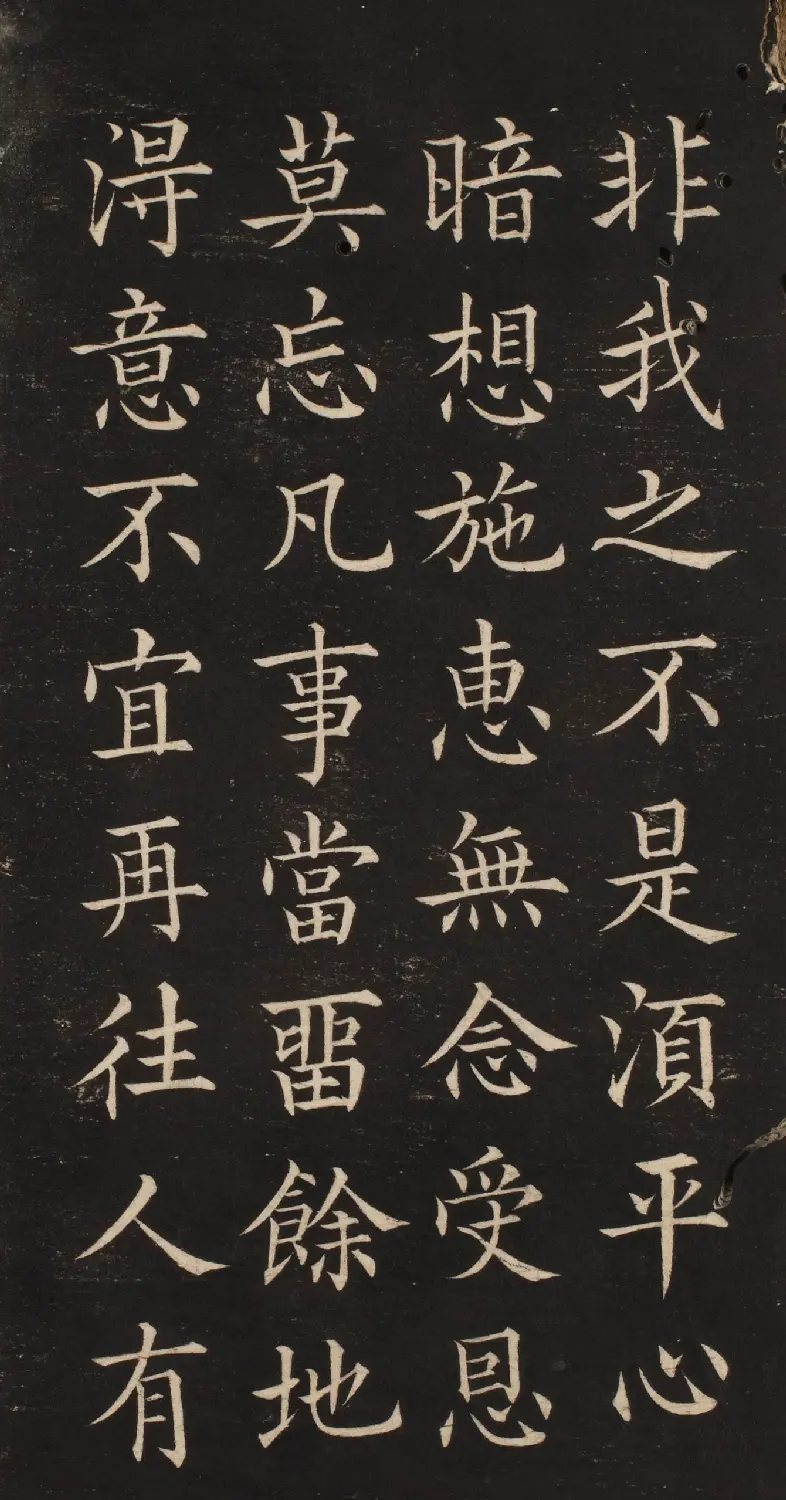 非我之不是須平心
暗想施恵無念受恩
莫忘凡事當畱餘地
淂意不宜再往人有